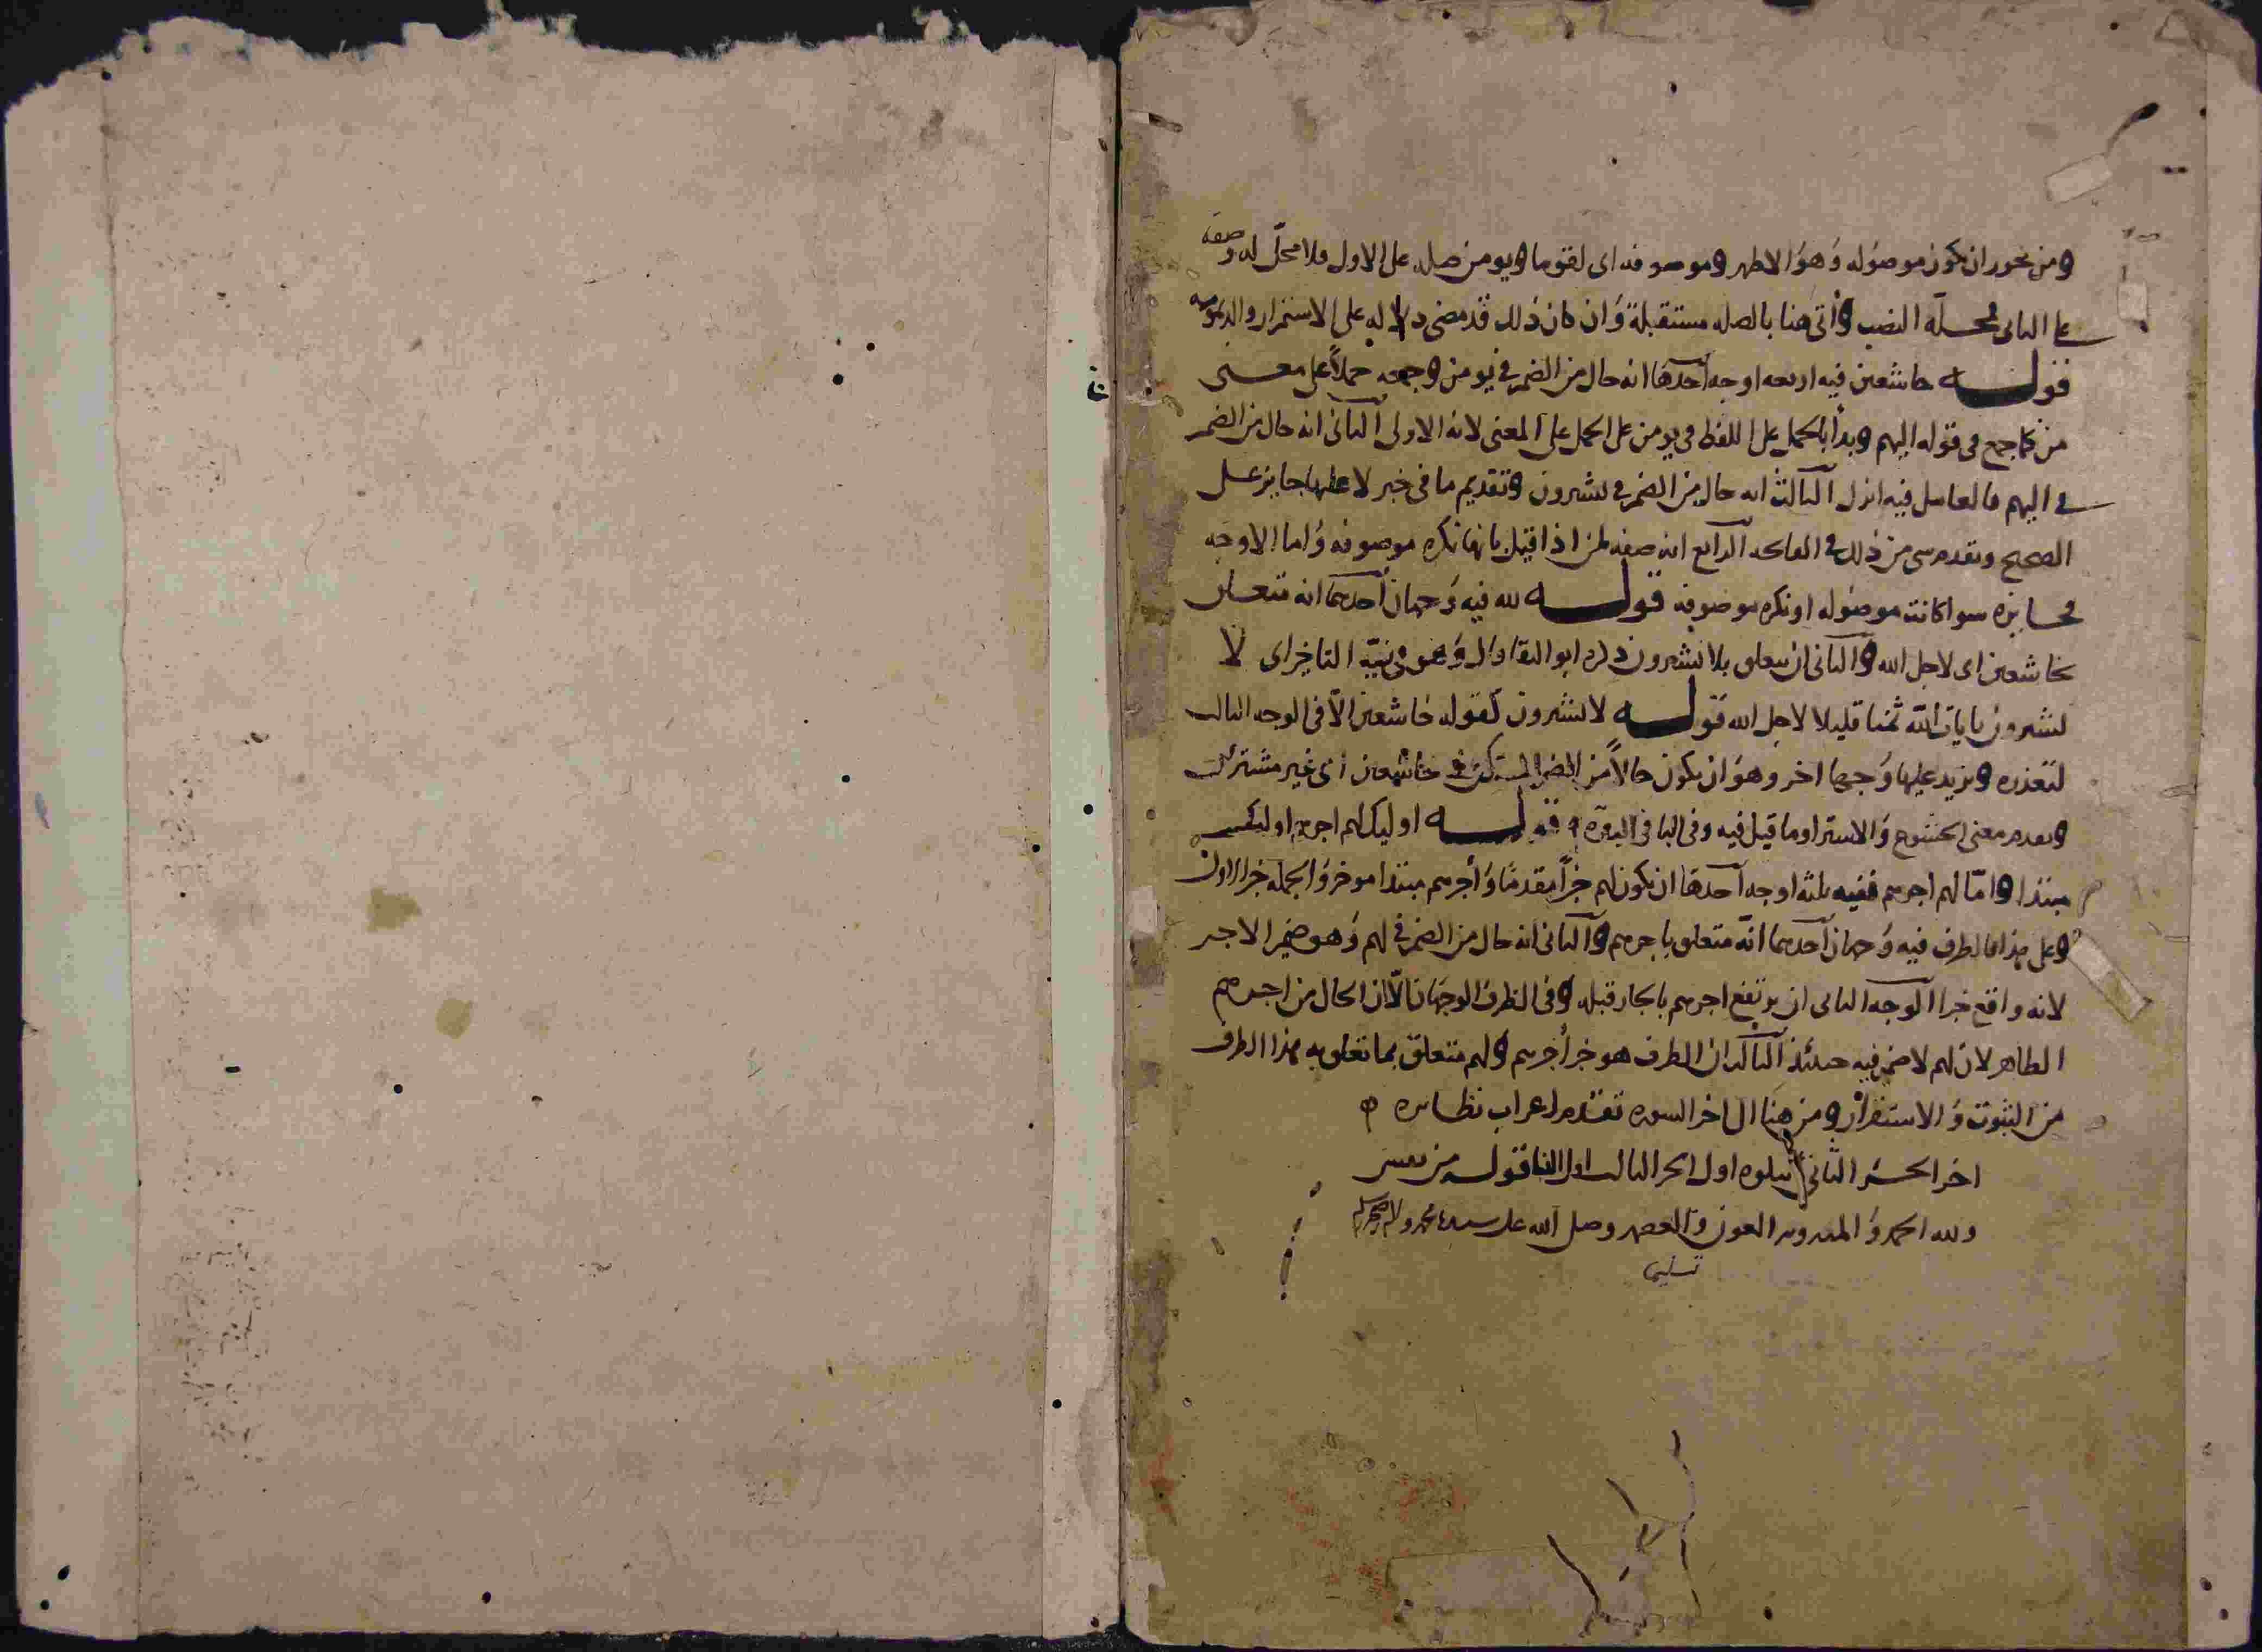 ومن يجوز ان تكون موصوله وَهوَ الاظهر وموصوفه اى لقوما ويومن صله على الاول فلا محلّ له وصفه
على الثانى فمحله النصب وأتى هنا بالصله مستقبلة وَان كان ذلك قد مضى دلاله على الاستمرار والديمومه
قوله خاشعين فيه اربعه اوجه أحدها انه حال من الضمير في يومن وجمعه حملاً على معنى
من كما جمع فى قوله اليهم وبدأ بالحمل على اللفظ فى يومن على الحمل على المعنى لانه الاولى الثانى انه حال من الضمير
فى اليهم فالعامل فيه انزل الثالث انه حال من الضمير فى يشترون وتقديم ما فى خبر لا عليها جايز على
الصحيح وتقدم شى من ذلك فى الفاتحه الرابع انه صفه لمن اذا قيل بانها نكره موصوفه وَاما الاوجه
فجايزه سوا كانت موصوله او نكره موصوفه قوله لله فيه وَجهان أحدهما انه متعلق
بخاشعين اى لاجل الله والثانى ان يتعلق بلا يشترون ذكره ابو البقا قال وَهو فى نيّه التاخير اى لا
يشترون بايات الله ثمنا قليلا لاجل الله قوله لا يشترون كقوله خاشعين الّا فى الوجه الثالث
لتعذره ويزيد عليها وَجها اخر وهوَ ان يكون حالاً من الضمير المستكن فى خاشعين اى غير مشترين
وتقدم معنى الخشوع وَالاشترا وما قيل فيه وفى البا فى البقره قوله اوليك لهم اجرهم اوليك
مبتدا وامّا لهم اجرهم ففيه ثلثه اوجه أحدها ان يكون لهم خبراً مقدمًا وَأجرهم مبتدا موخر وَالجمله خبر الاول
وعلى هذا فالظرف فيه وَجهان أحدهما انّه متعلق باجرهم والثانى انه حال من الضمير فى لهم وَهو ضمير الاجر
لانه واقع خبرا الوجه الثانى ان يرتفع اجرهم بالجار قبله وفى الظرف الوجهان الّا ان الحال من اجرهم
الظاهر لان لهم لا ضمير فيه حينئذ الثالث ان الظرف هو خبر أجرهم ولهم متعلق بما تعلق به هذا الظرف
من الثبوت وَالاستقرار ومن هنا الى اخر السوره تقدم اعراب نظايره
اخر الجز الثانى يتلوه اول الجز الثالث اول النسا قوله من نفس
ولله الحمد وَالمنه وبه العون وَالعصمه وصلى الله على سيدنا محمد واله وصحبه وسلم
تسليما